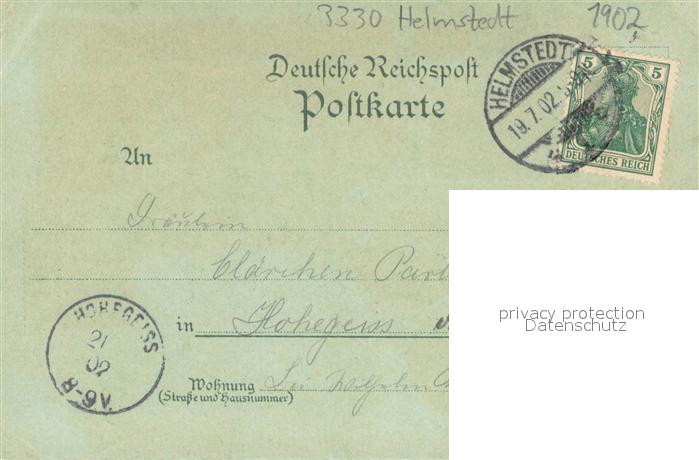 3330 Helmstedt 1902
Deutsche Reichspost
Postkarte
HELMSTEDT
19.7.02
5 5
DEUTSCHES REICH
An
Fräulein
Clärchen
privacy protection
Datenschutz
HOHEGEISS
21
02
8-9V.
in Hohegeiss
Wohnung
(Straße und Hausnummer)